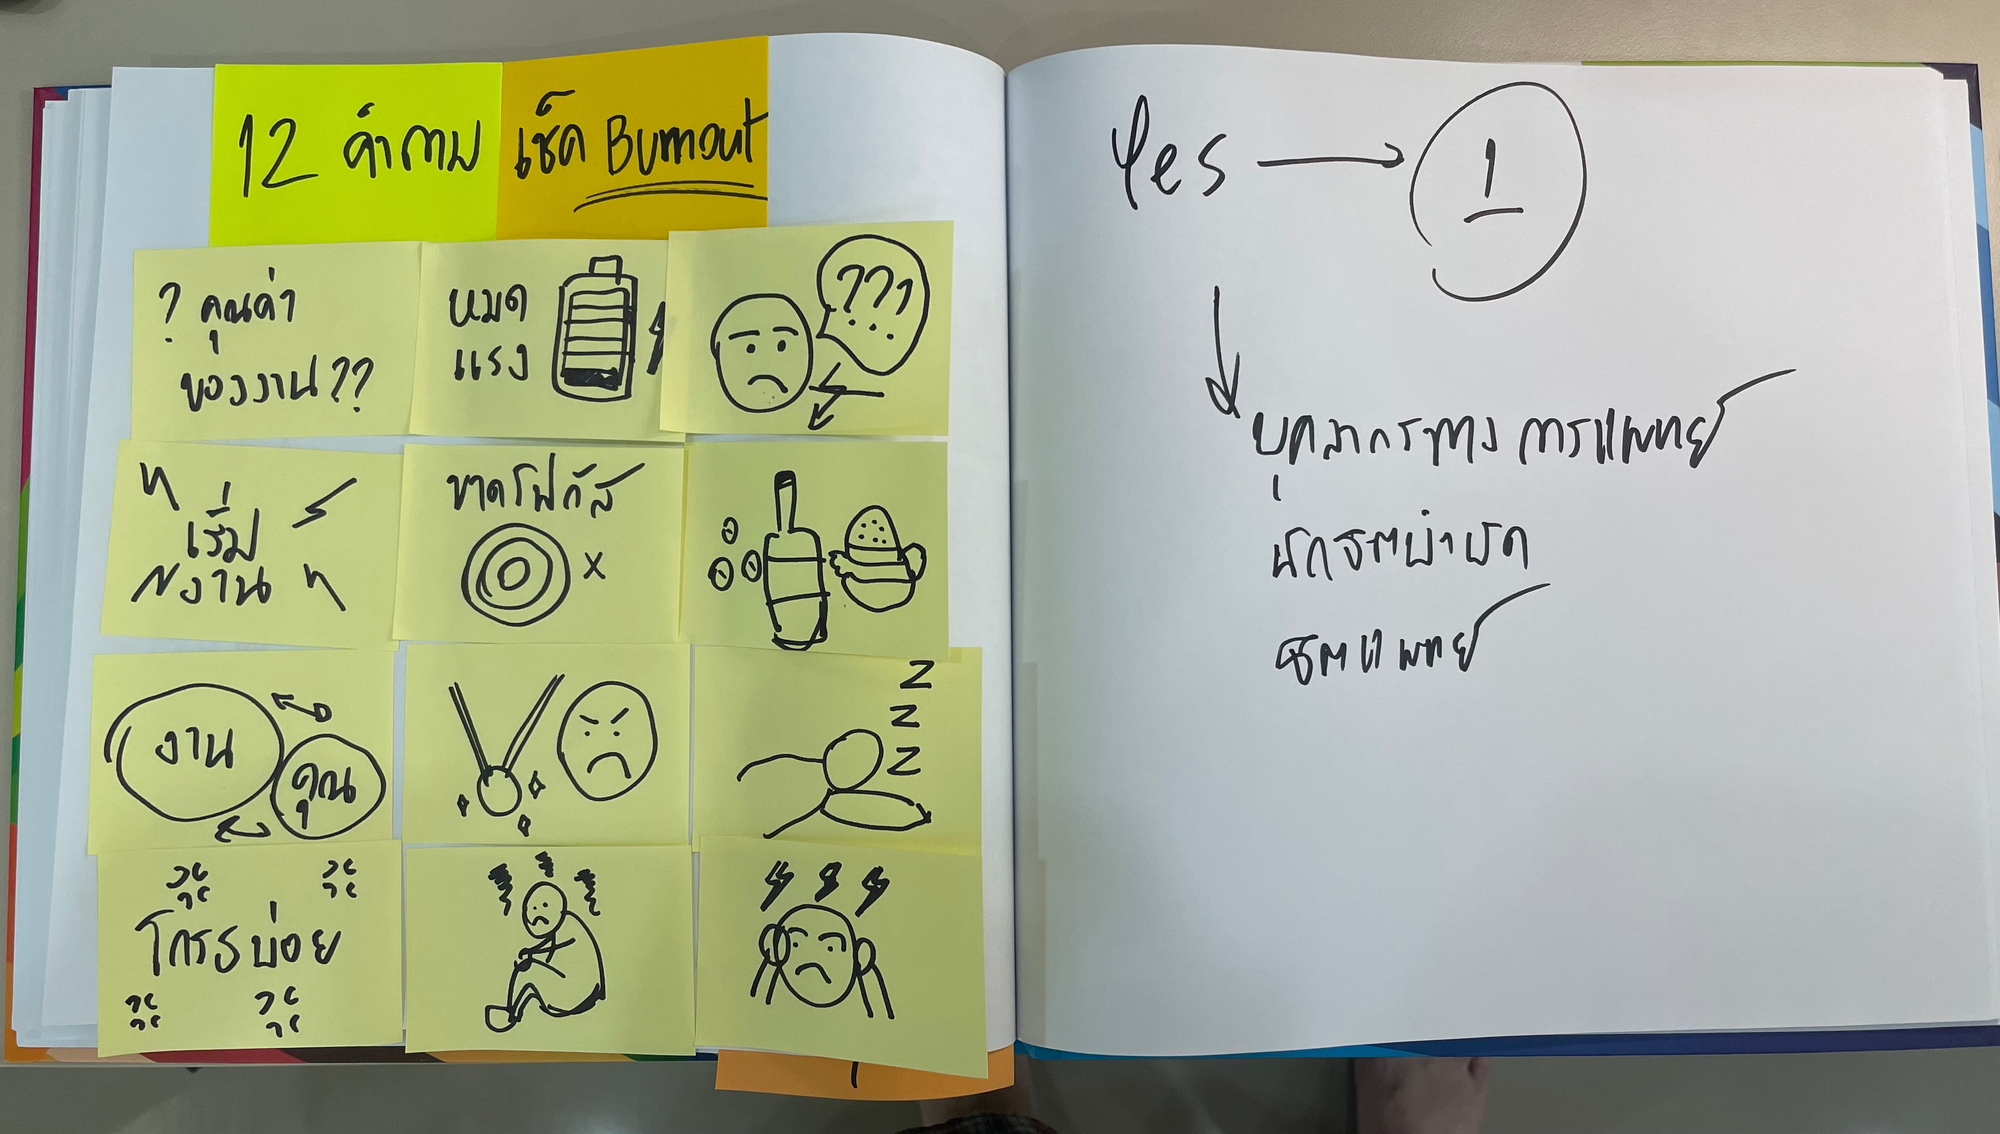 12 คำถาม เช็ค Burnout
? คุณค่า
ของงาน??
หมด
แรง
???
เริ่ม
งาน
ขาดโฟกัส
x
งาน
คุณ
Z
Z
Z
โกรธบ่อย
Yes → 1
บุคลากรทางการแพทย์
นักจิตบำบัด
จิตแพทย์